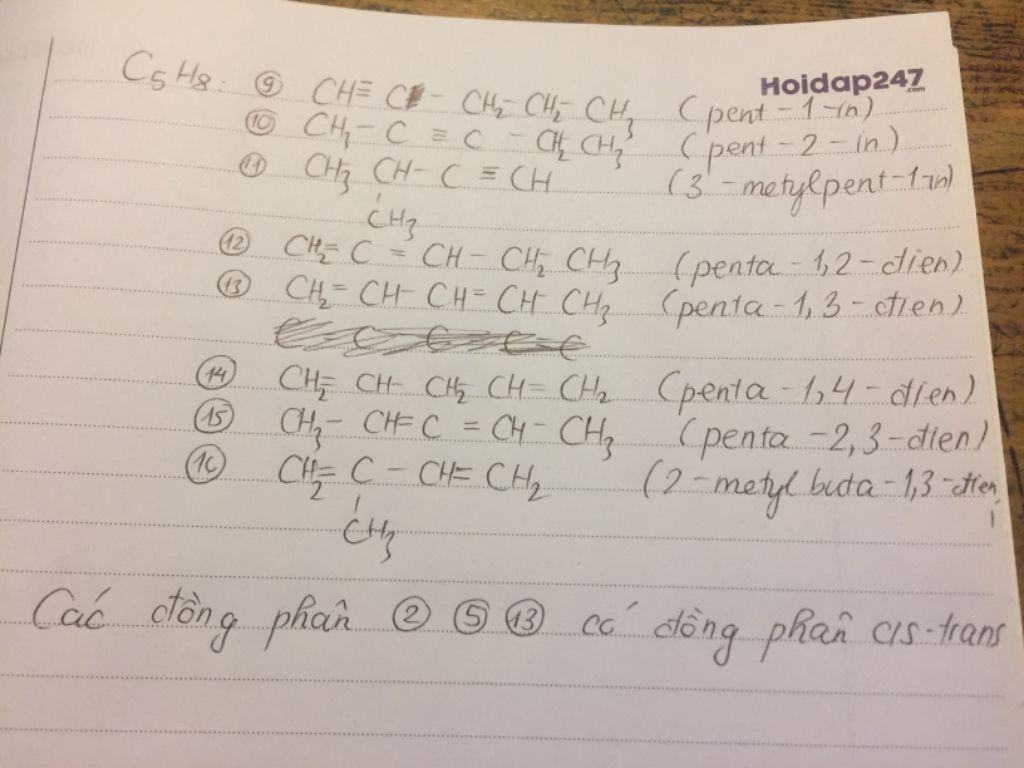 C5H8. ⑨ CH≡C - CH2-CH2-CH3 (pent-1-in)
Hoidap247.com
⑩ CH3-C ≡ C - CH2 CH3 (pent-2-in)
⑪ CH3 CH-C ≡ CH (3-metylpent-1-in)
CH3
⑫ CH2=C = CH - CH2 CH3 (penta-1,2-dien)
⑬ CH2=CH-CH=CH-CH3 (penta-1,3-dien)
⑭ CH2=CH-CH2 CH=CH2 (penta-1,4-dien)
⑮ CH3-CH=C =CH-CH3 (penta-2,3-dien)
⑯ CH2=C - CH=CH2 (2-metyl buta-1,3-dien)
CH3
Các đồng phân ② ⑤ ⑬ có đồng phân cis-trans